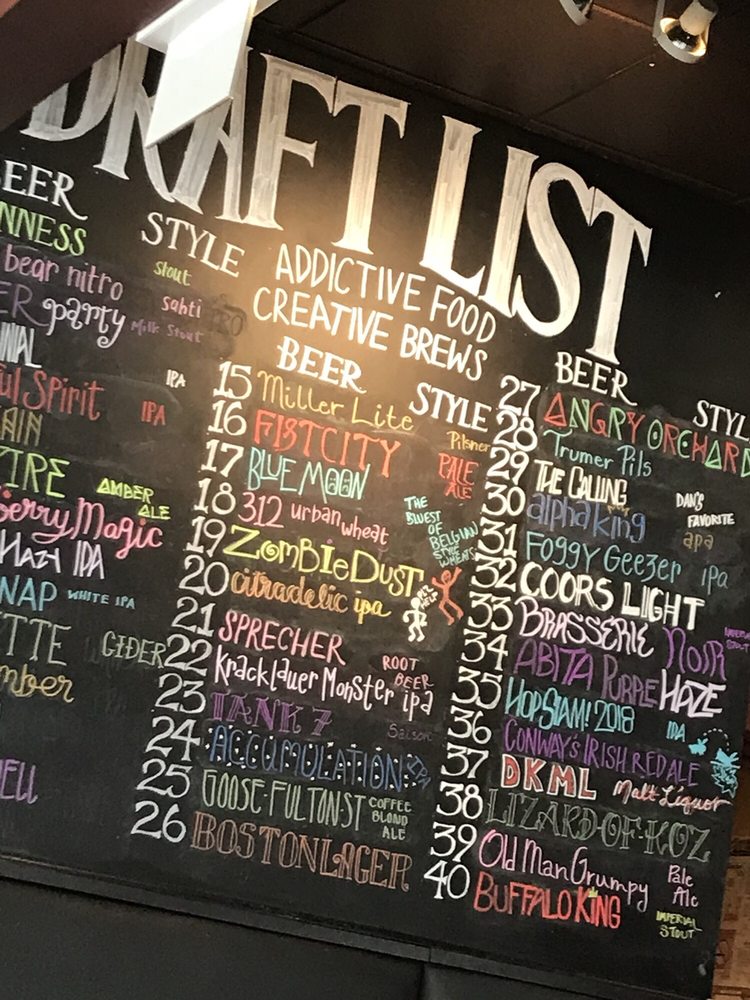 DRAFT LIST
BEER
STYLE
NNESS
stout
bear nitro
sahti
ER party
Milk Stout
NIAL
IPA
ul Spirit
IPA
AIN
IRE
AMBER
ALE
berry Magic
HAZY IPA
NAP
WHITE IPA
TTE
CIDER
mber
ELL
ADDICTIVE FOOD
CREATIVE BREWS
BEER
STYLE
15 Miller Lite
Pilsner
16 FISTCITY
PALE
ALE
17 BLUE MOON
THE
BLUEST
OF
BELGIAN
STYLE
WHEATS
18 312 urban wheat
19 ZOMBIE DUST
PLZ
HELP
20 citradelic ipa
21 SPRECHER
ROOT
BEER
22 Kracklauer Monster ipa
23 TANK 7
Saison
24 ACCUMULATION
IPA
25 GOOSE-FULTON ST
COFFEE
BLOND
ALE
26 BOSTON LAGER
BEER
STYL
27 ANGRY ORCHARD
28 Trumer Pils
29 THE CALLING
DAN'S
FAVORITE
30 alpha king
apa
31 FOGGY Geezer
ipa
32 COORS LIGHT
33 BRASSERIE NOIR
IMPERIAL
STOUT
34 ABITA PURPLE HAZE
35 HOPSLAM! 2018
IPA
36 CONWAY'S IRISH RED ALE
37 DKML
Malt Liquor
38 LIZARD-OF-KOZ
39 Old Man Grumpy
Pale
Ale
40 BUFFALO KING
IMPERIAL
STOUT